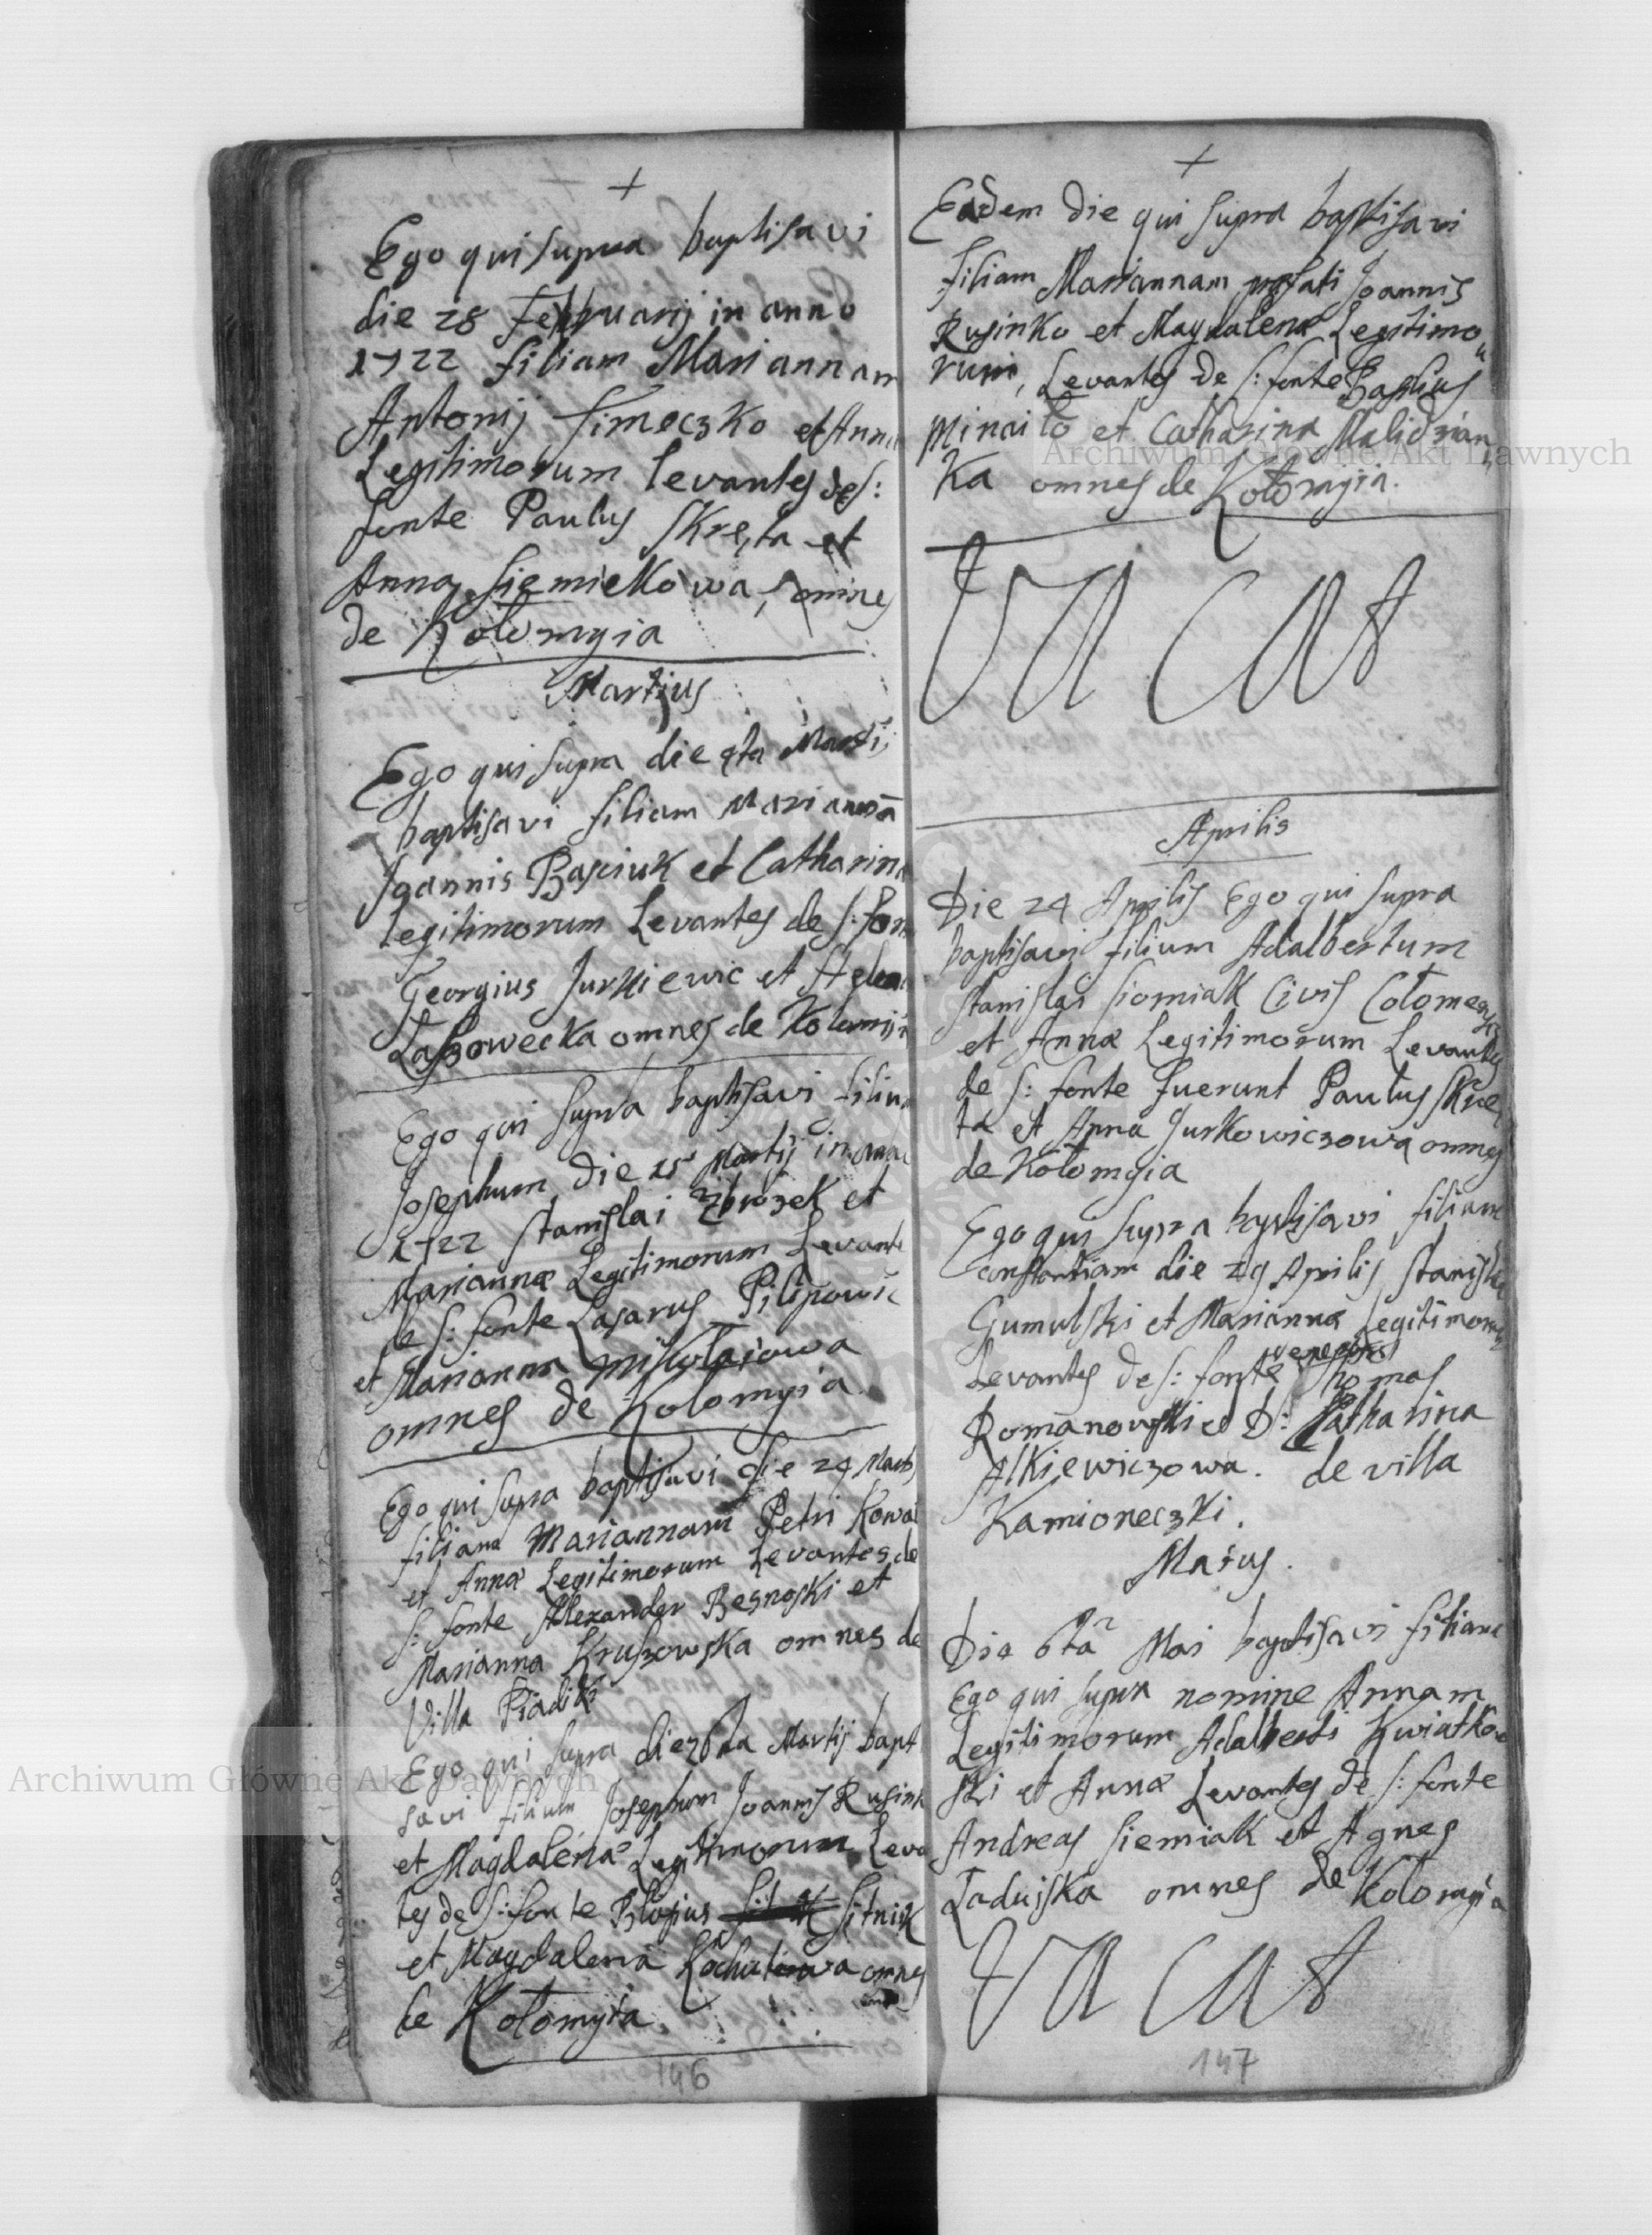 +
Ego qui supra baptisavi
die 28 Februarij in anno
1722 filiam Mariannam
Antonij Simeczko et Anna
Legitimorum levantes de s:
fonte Paulus Skręta et
Anna Siemiekowa, omnes
de Kołomyia
Martius
Ego qui supra die 4ta Martij
baptisavi filiam Mariannā
Joannis Basciuk et Catharina
legitimorum Levantes de s: fon
Georgius Jurkiewic et Helena
Łaszowecka omnes de Kolomyia
Ego qui supra baptisavi filiu
Josephum die 25 Martij in anno
1722 Stanislai et
Mariannæ Legitimorum Levante
de s: fonte Lasarus Pilipowic
et Marianna Mikołaiowa
omnes de Kolomyia.
Ego qui supra baptisavi die 24 Martij
filiam Mariannam Petri Kowal
et Annæ Legitimorum Levantes de
s: fonte Alexander Besnoski et
Marianna Kruszowska omnes de
Villa Piadiki
Ego qui supra die 26ta Martij bapt
savi filium Josephum Joannis Rusink
et Magdalenæ Legitimorum Leva
tes de s: fonte Blasius Sitnik
et Magdalena omnes
de Kołomyia
146
+
Eadem die qui supra baptisavi
filiam Mariannam præfati Joannis
Rusinko et Magdalenæ Legitimo
rum, Levantes de s: fonte Basilius
Minaiło et Catharina Malidrian
ka omnes de Kołomyia.
VACAt
Aprilis
Die 24 Aprilis Ego qui supra
baptisavi filium Adalbertum
Stanislai Siomiak Civis Colomey
et Annæ Legitimorum Levantes
de s: fonte fuerunt Paulus Skrę
ta et Anna Jurkowiczowa omnes
de Kołomyia
Ego qui supra baptisavi filiam
Constantiam die 29 Aprilis Stanislai
Gumulski et Mariannæ Legitimoru
Levantes de s: fonte Thomas
Romanowski et D: Catharina
Alkiewiczowa. de villa
Kamioneczki.
Maius.
Die 6ta Mai baptisavi filiam
Ego qui supra nomine Annam
Legitimorum Adalberti Kwiatko
ski et Annæ Levantes de s: fonte
Andreas Siemiak et Agnes
Ładuiska omnes de Kolomyia
VACAt
147
Archiwum Główne Akt Dawnych
Archiwum Główne Akt Dawnych